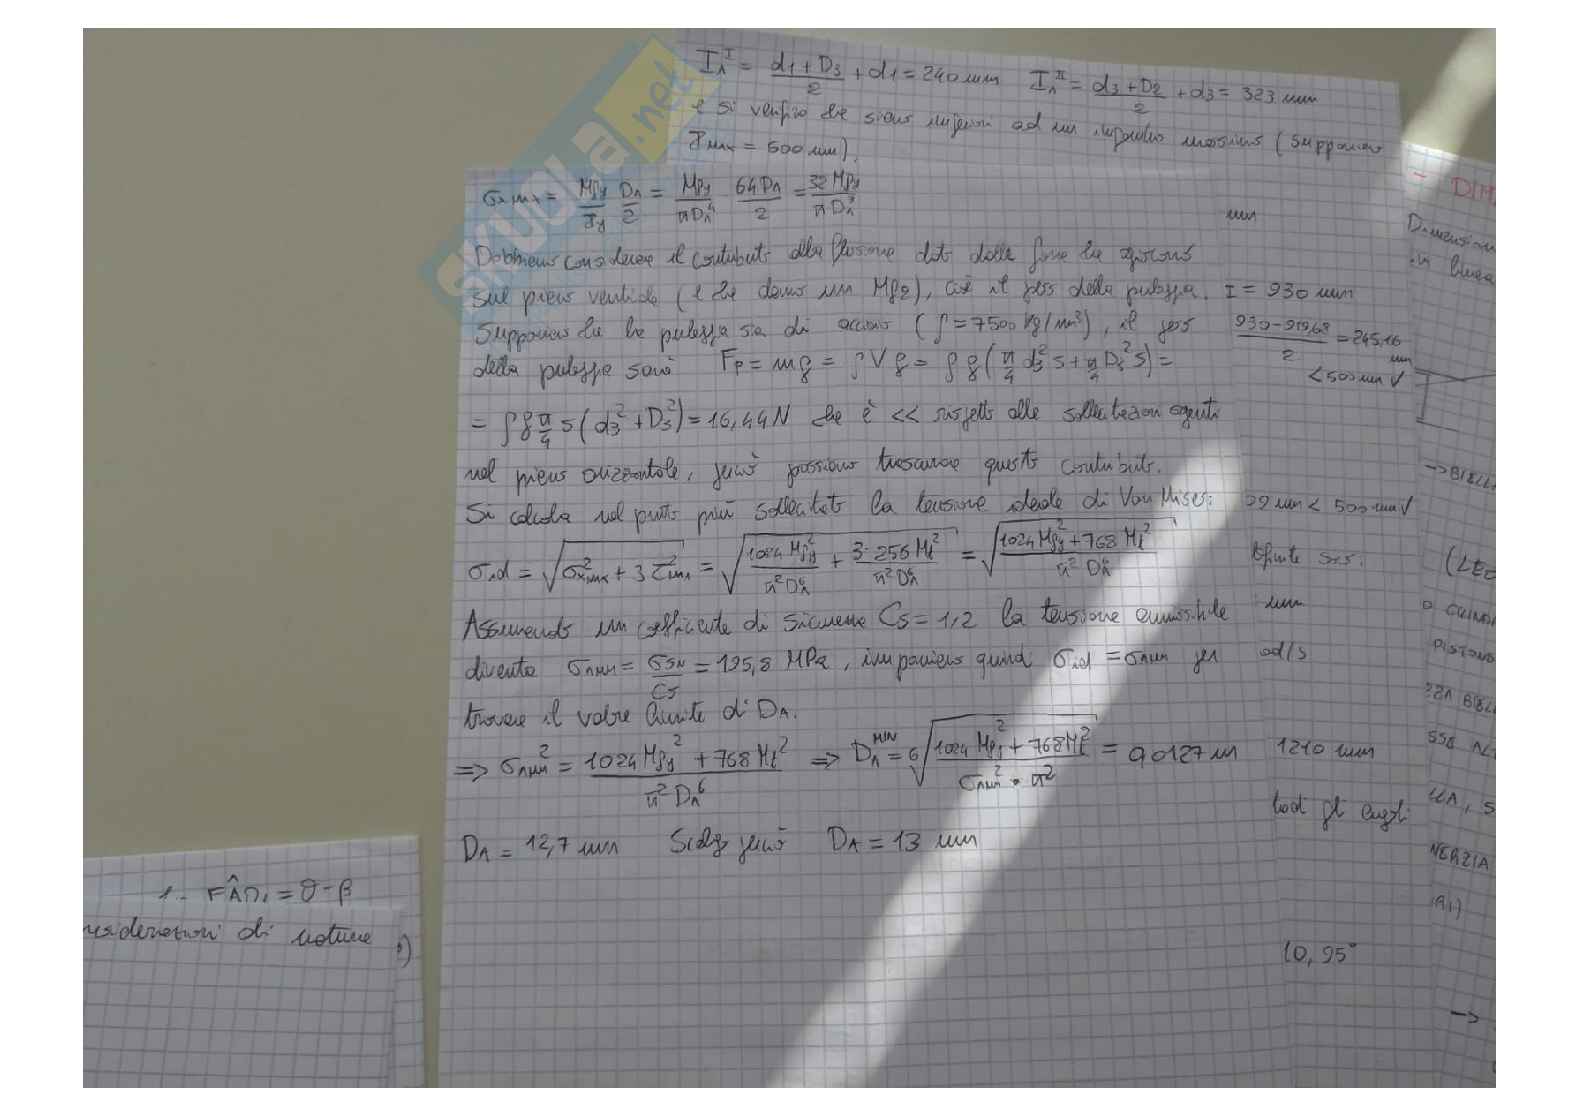 I_A^I = (d1 + D3)/2 + d1 = 240 mm   I_A^II = (d3 + D2)/2 + d3 = 323 mm
e si verifica che siano inferiori ad un ingombro massimo (supponiamo
I max = 500 mm).
SKUOLA.net
σx max = Mfy/Jy D_A/2 = Mfy/πD_A^4 64D_A/2 = 32 Mfy/πD_A^3
Dobbiamo considerare il contributo alla flessione dato dalle forze che agiscono
sul piano verticale (e che danno un Mfz), cioè il peso della puleggia.
Supponiamo che la puleggia sia di acciaio (ρ = 7500 kg/m³), il peso
della puleggia sarà Fp = mg = ρVg = ρg(π/4 d3² s + π/4 D3² s) =
= ρg π/4 s (d3² + D3²) = 16,44 N che è << rispetto alle sollecitazioni agenti
nel piano orizzontale, perciò possiamo trascurare questo contributo.
Si calcola nel punto più sollecitato la tensione ideale di Von Mises:
σid = √(σ²x max + 3 τ²max) = √(1024 Mfy²/π²D_A^6 + 3·256 Mt²/π²D_A^6) = √((1024 Mfy² + 768 Mt²)/π²D_A^6)
Assumendo un coefficiente di sicurezza Cs = 1,2 la tensione ammissibile
diventa σamm = σsn/Cs = 195,8 MPa, imponiamo quindi σid = σamm per
trovare il valore limite di D_A.
=> σamm² = (1024 Mfy² + 768 Mt²)/π²D_A^6 => D_A^MIN = ⁶√((1024 Mfy² + 768 Mt²)/(σamm² · π²)) = 0,0127 m
D_A = 12,7 mm   Scelgo perciò D_A = 13 mm
mm
I = 930 mm
(930 - 919,68)/2 = 245,16 mm
< 500 mm V
99 mm < 500 mm V
mm
ad/s
1210 mm
10,95°
- DIM
Dimension
in linea
-> BIELL
PISTONE
BIEL
NERZIA
->
FÂD = θ - β
nsiderazioni di natura